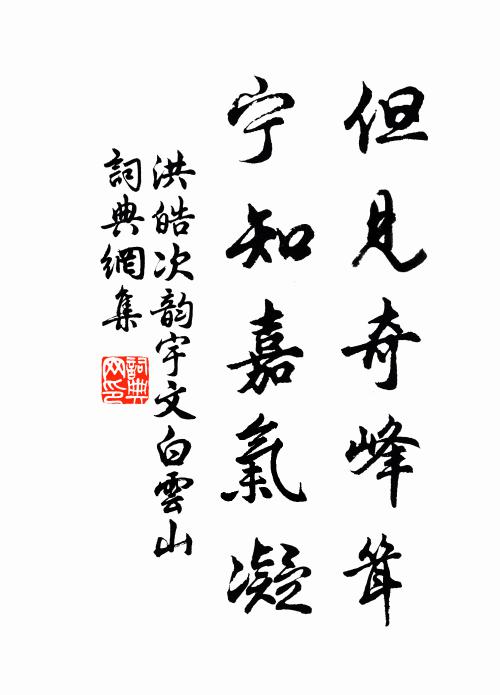 但見奇峰聳
宁知嘉氣凝
洪皓次韵宇文白雲山
詞典網集
詞典網印